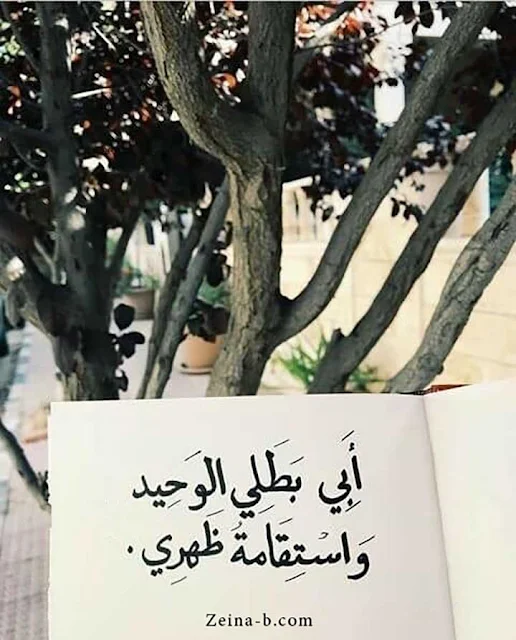 أَبِي بَطَلِي الوَحِيد
وَاسْتِقَامةُ ظَهرِي.
Zeina-b.com